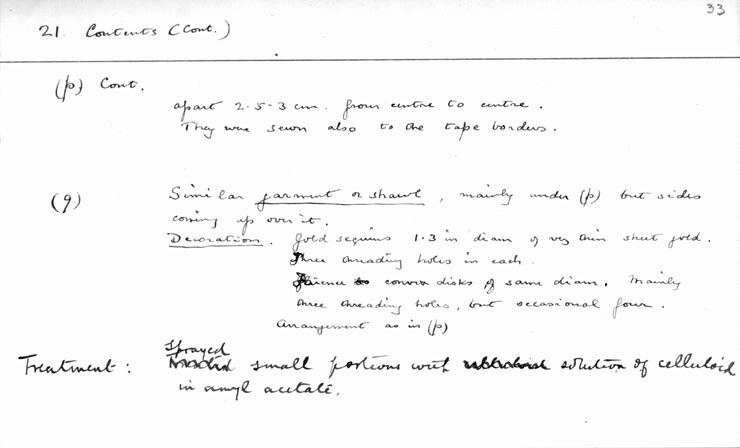 33
21. Contents (Cont.)
(p) Cont.
apart 2.5-3 cm. from centre to centre.
They were sewn also to the tape borders.
(q) Similar garment or shawl, mainly under (p) but sides
coming up over it.
Decoration. Gold sequins 1.3 in diam of very thin sheet gold.
Three threading holes in each.
Faience convex disks of same diam. Mainly
three threading holes, but occasional four.
Arrangement as in (p)
Treatment: Sprayed small portions with solution of celluloid
in amyl acetate.